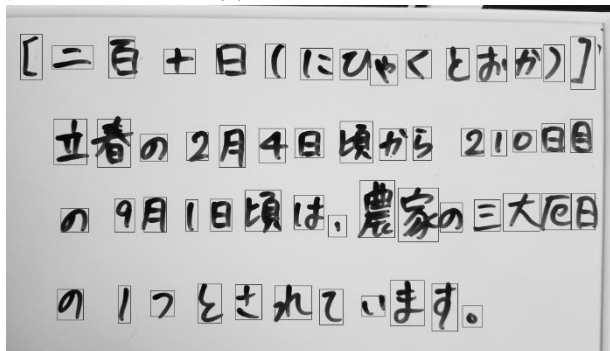 [二百十日(にひゃくとおか)]
立春の2月4日頃から 210日目
の9月1日頃は、農家の三大厄日
の1つとされています。